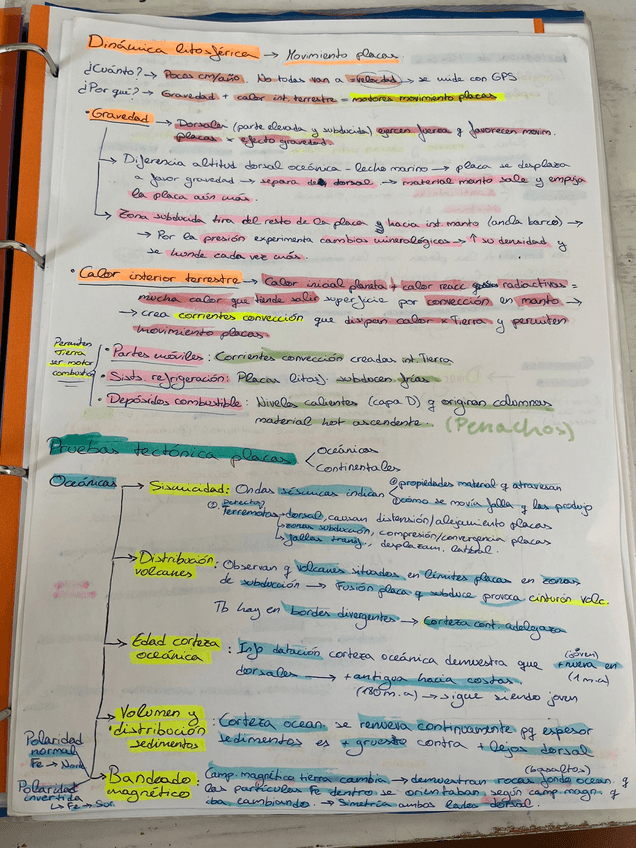 Dinámica litosférica → Movimiento placas
¿Cuánto? → Pocas cm/año. No todas van a = velocidad → se mide con GPS
¿Por qué? → Gravedad + calor int. terrestre = motores movimiento placas
• Gravedad → Dorsales (parte elevada y subducida) ejercen fuerza y favorecen movim.
placas x efecto gravedad.
→ Diferencia altitud dorsal oceánica - lecho marino → placa se desplaza
a favor gravedad → separa de dorsal → material manto sale y empuja
la placa aún más.
→ Zona subducida tira del resto de la placa y hacia int. manto (ancla barco) →
→ Por la presión experimenta cambios mineralógicos → ↑ su densidad y
se hunde cada vez más.
• Calor interior terrestre → Calor inicial planeta + calor reacc radioactivas =
mucha calor que tiende salir superficie por convección en manto →
→ crea corrientes convección que disipan calor x Tierra y permiten
movimiento placas
Permiten
Tierra
ser motor
combustión
• Partes móviles: Corrientes convección creadas int. Tierra
• Sists. refrigeración: Placas litosf. subducen frías
• Depósidos combustible: Niveles calientes (capa D) q originan columnas
material hot ascendente. (Penachos)
Pruebas tectónica placas
Oceánicas
Continentales
Oceánicas
→ Sismicidad: Ondas sísmicas indican ① propiedades material q atraviesan
② cómo se movía falla q las produjo
Terremotos → dorsal, causan distensión/alejamiento placas
→ zonas subducción, compresión/convergencia placas
→ fallas transf., desplazam. lateral.
→ Distribución volcanes: Observan q volcanes situados en límites placas en zonas
de subducción → Fusión placa q subduce provoca cinturón volc.
Tb hay en bordes divergentes → Corteza cont. adelgaza
→ Edad corteza oceánica: Info datación corteza oceánica demuestra que + nueva en (joven)
dorsales → + antigua hacia costas (1 m.a)
(180 m.a) → sigue siendo joven
→ Volumen y distribución sedimentos: Corteza ocean. se renueva continuamente pq espesor
sedimentos es + grueso contra + lejos dorsal
Polaridad
normal
Fe → Norte
Polaridad
invertida
↳ Fe → Sur
→ Bandeado magnético: Camp. magnético tierra cambia → demuestran rocas fondo ocean. q (basaltos)
las partículas Fe dentro se orientaban según camp. magn. q
iba cambiando. → Simetría ambos lados dorsal.